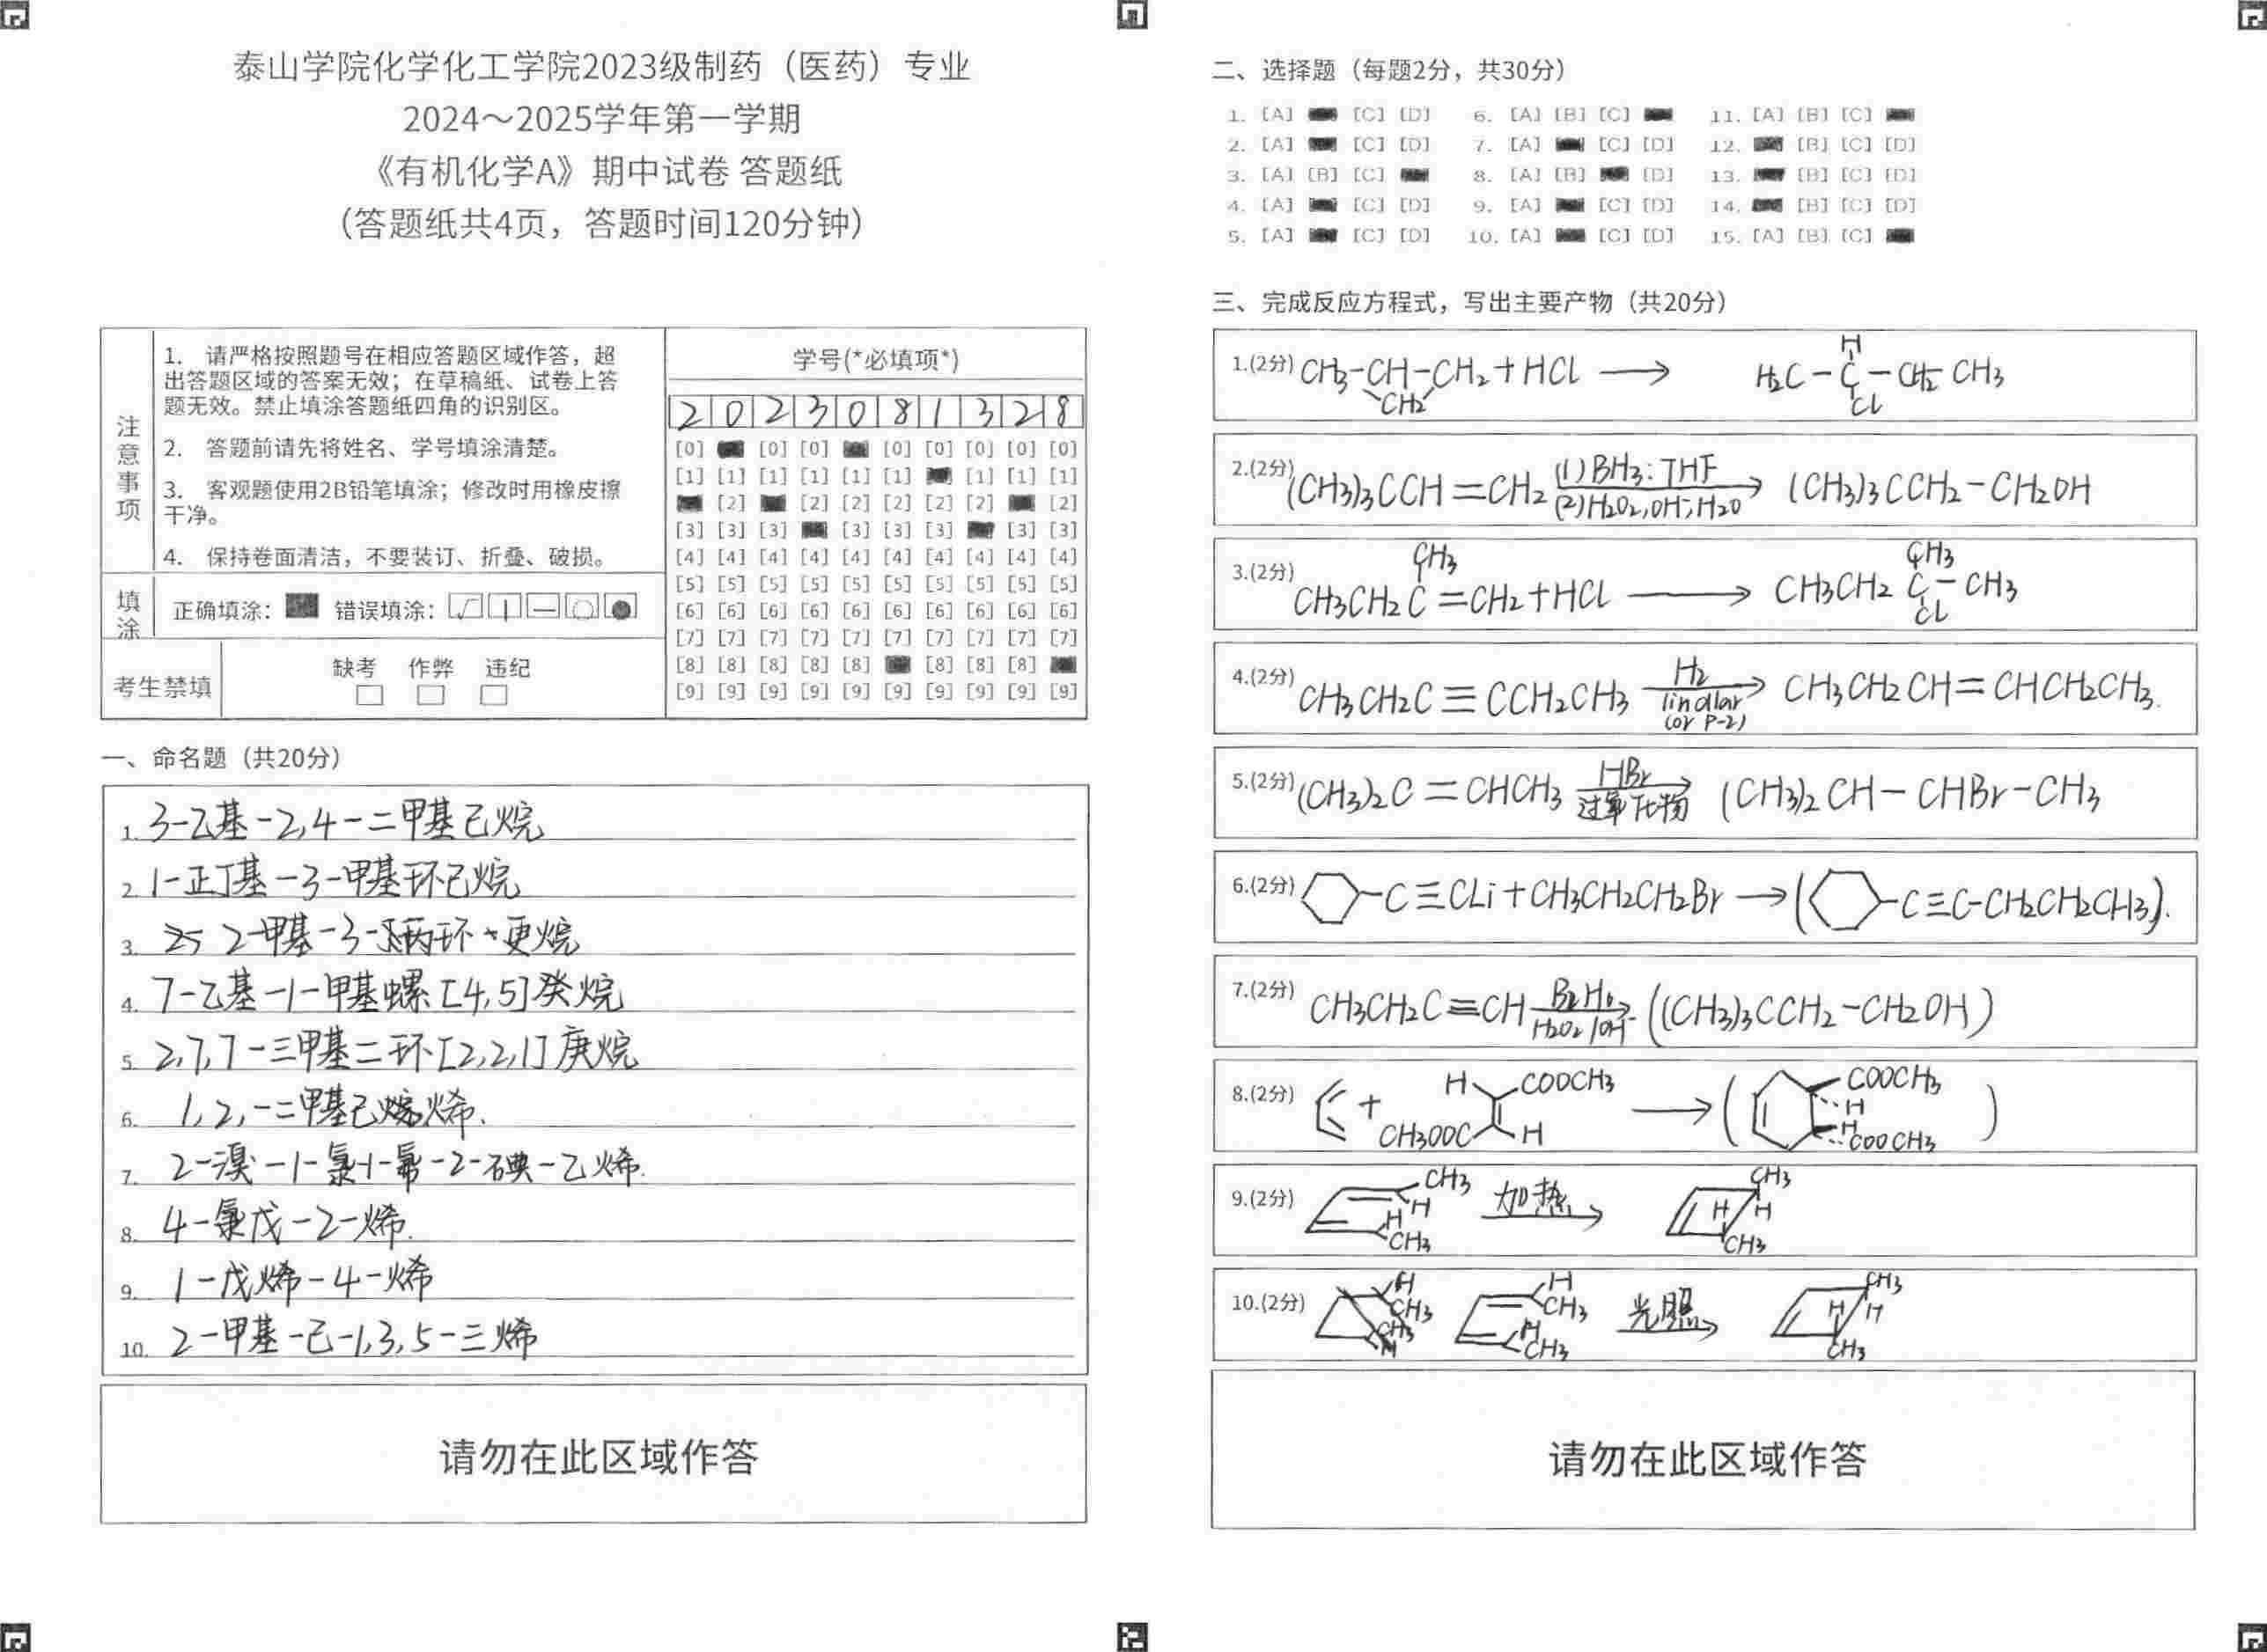 泰山学院化学化工学院2023级制药（医药）专业
2024～2025学年第一学期
《有机化学A》期中试卷 答题纸
（答题纸共4页，答题时间120分钟）
注意事项
1. 请严格按照题号在相应答题区域作答，超
出答题区域的答案无效；在草稿纸、试卷上答
题无效。禁止填涂答题纸四角的识别区。
2. 答题前请先将姓名、学号填涂清楚。
3. 客观题使用2B铅笔填涂；修改时用橡皮擦
干净。
4. 保持卷面清洁，不要装订、折叠、破损。
填涂 正确填涂： 错误填涂：
考生禁填 缺考 作弊 违纪
学号(*必填项*)
2 0 2 3 0 8 1 3 2 8
[0] [0] [0] [0] [0] [0] [0] [0]
[1] [1] [1] [1] [1] [1] [1] [1] [1]
[2] [2] [2] [2] [2] [2] [2]
[3] [3] [3] [3] [3] [3] [3] [3]
[4] [4] [4] [4] [4] [4] [4] [4] [4] [4]
[5] [5] [5] [5] [5] [5] [5] [5] [5] [5]
[6] [6] [6] [6] [6] [6] [6] [6] [6] [6]
[7] [7] [7] [7] [7] [7] [7] [7] [7] [7]
[8] [8] [8] [8] [8] [8] [8] [8]
[9] [9] [9] [9] [9] [9] [9] [9] [9] [9]
一、命名题（共20分）
1. 3-乙基-2,4-二甲基己烷
2. 1-正丁基-3-甲基环己烷
3. 2-甲基-3-环丙环 烷
4. 7-乙基-1-甲基螺[4,5]癸烷
5. 2,7,7-三甲基二环[2,2,1]庚烷
6. 1,2,-二甲基己烯.
7. 2-溴-1-氯-1-氟-2-碘-乙烯.
8. 4-氯戊-2-烯.
9. 1-戊烯-4-烯
10. 2-甲基-己-1,3,5-三烯
请勿在此区域作答
二、选择题（每题2分，共30分）
1. [A] [C] [D] 6. [A] [B] [C] 11. [A] [B] [C]
2. [A] [C] [D] 7. [A] [C] [D] 12. [B] [C] [D]
3. [A] [B] [C] 8. [A] [B] [D] 13. [B] [C] [D]
4. [A] [C] [D] 9. [A] [C] [D] 14. [B] [C] [D]
5. [A] [C] [D] 10. [A] [C] [D] 15. [A] [B] [C]
三、完成反应方程式，写出主要产物（共20分）
1.(2分) CH3-CH-CH2+HCl → H2C-C-CH2 CH3
CH2 H Cl
2.(2分) (CH3)3CCH=CH2 (1)BH3:THF (2)H2O2,OH-,H2O → (CH3)3CCH2-CH2OH
3.(2分) CH3CH2C=CH2+HCl → CH3CH2 C-CH3
CH3 CH3 Cl
4.(2分) CH3CH2C≡CCH2CH3 H2 lindlar (or P-2) → CH3CH2CH=CHCH2CH3.
5.(2分) (CH3)2C=CHCH3 HBr 过氧化物 → (CH3)2CH-CHBr-CH3
6.(2分) -C≡CLi+CH3CH2CH2Br → ( -C≡C-CH2CH2CH3).
7.(2分) CH3CH2C≡CH B2H6 H2O2/OH- → ((CH3)3CCH2-CH2OH)
8.(2分) + H COOCH3 CH3OOC H → ( COOCH3 H H COOCH3 )
9.(2分) CH3 H H CH3 加热 → CH3 H H CH3
10.(2分) H CH3 H CH3 光照 → CH3 H H CH3
请勿在此区域作答